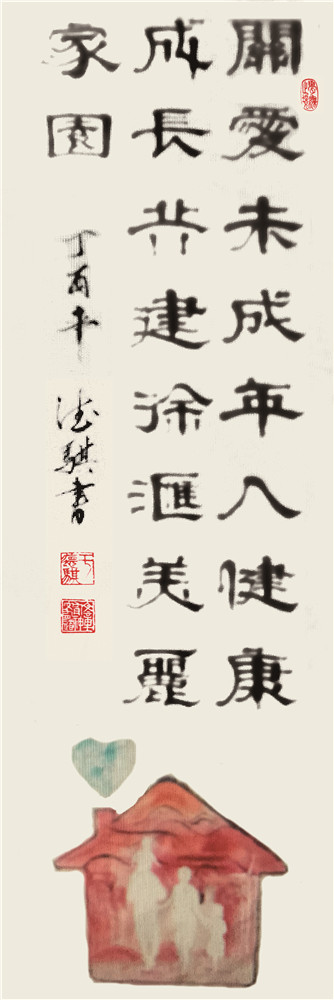 關愛未成年人健康
成長共建徐滙美麗
家園
丁酉年
德騏書